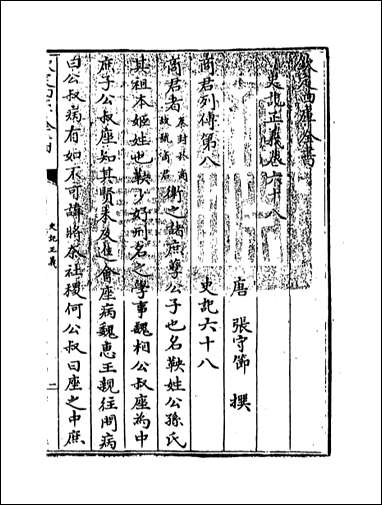 欽定四庫全書
史記正義卷六十八
唐 張守節 撰
商君列傳第八 史記六十八
商君者秦封於商故號商君衛之諸庶孽公子也名鞅姓公孫氏
其祖本姬姓也鞅少好刑名之學事魏相公叔座為中
庶子公叔座知其賢未及進會座病魏惠王親往問病
曰公叔病有如不可諱將柰社稷何公叔曰座之中庶
史記正義